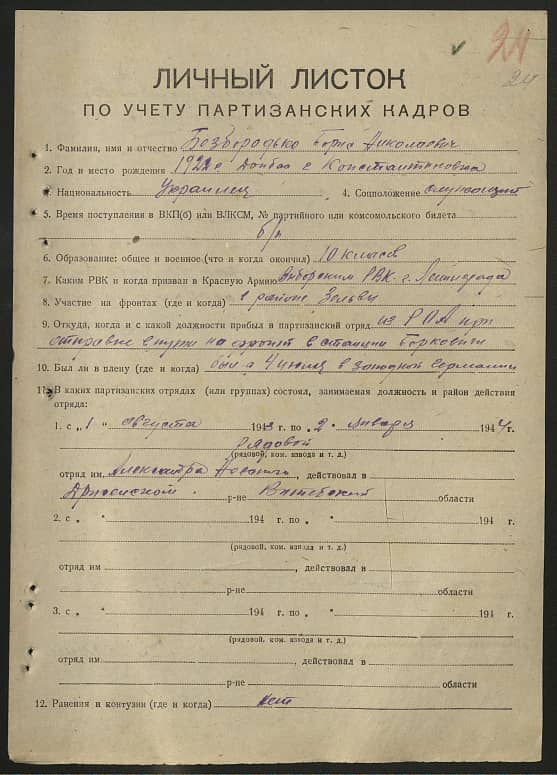 24
24
ЛИЧНЫЙ ЛИСТОК
ПО УЧЕТУ ПАРТИЗАНСКИХ КАДРОВ
1. Фамилия, имя и отчество Безбородько Борис Николаевич
2. Год и место рождения 1922 г Донбас с Константиновка
3. Национальность Украинец 4. Соцположение служащий
5. Время поступления в ВКП(б) или ВЛКСМ, № партийного или комсомольского билета
б/п
6. Образование: общее и военное (что и когда окончил) 10 класов
7. Каким РВК и когда призван в Красную Армию Выборским РВК г. Ленинграда
8. Участие на фронтах (где и когда) в районе Зельвы
9. Откуда, когда и с какой должности прибыл в партизанский отряд из РОА при
отправке с пути на фронт в станции Борковичи
10. Был ли в плену (где и когда) был в западной Германии
11. В каких партизанских отрядах (или группах) состоял, занимаемая должность и район действия
отряда:
1. с „1 “ августа 1943 г. по „ 2. “ января 1944 г.
рядовой
(рядовой, ком. взвода и т. д.)
отряд им. Александра , действовал в
р-не Витебской области
2. с „ “ 194 г. по „ “ 194 г.
(рядовой, ком. взвода и т. д.)
отряд им , действовал в
р-не области
3. с „ “ 194 г. по „ “ 194 г.
(рядовой, ком. взвода и т. д.)
отряд им , действовал в
р-не области
12. Ранения и контузии (где и когда) нет